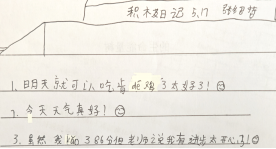 积木日记 5.17
1.明天就可以吃肯德鸡了太好了!
2.今天天气真好!
3.虽然我 了86分但老师说我有进步太开心了!